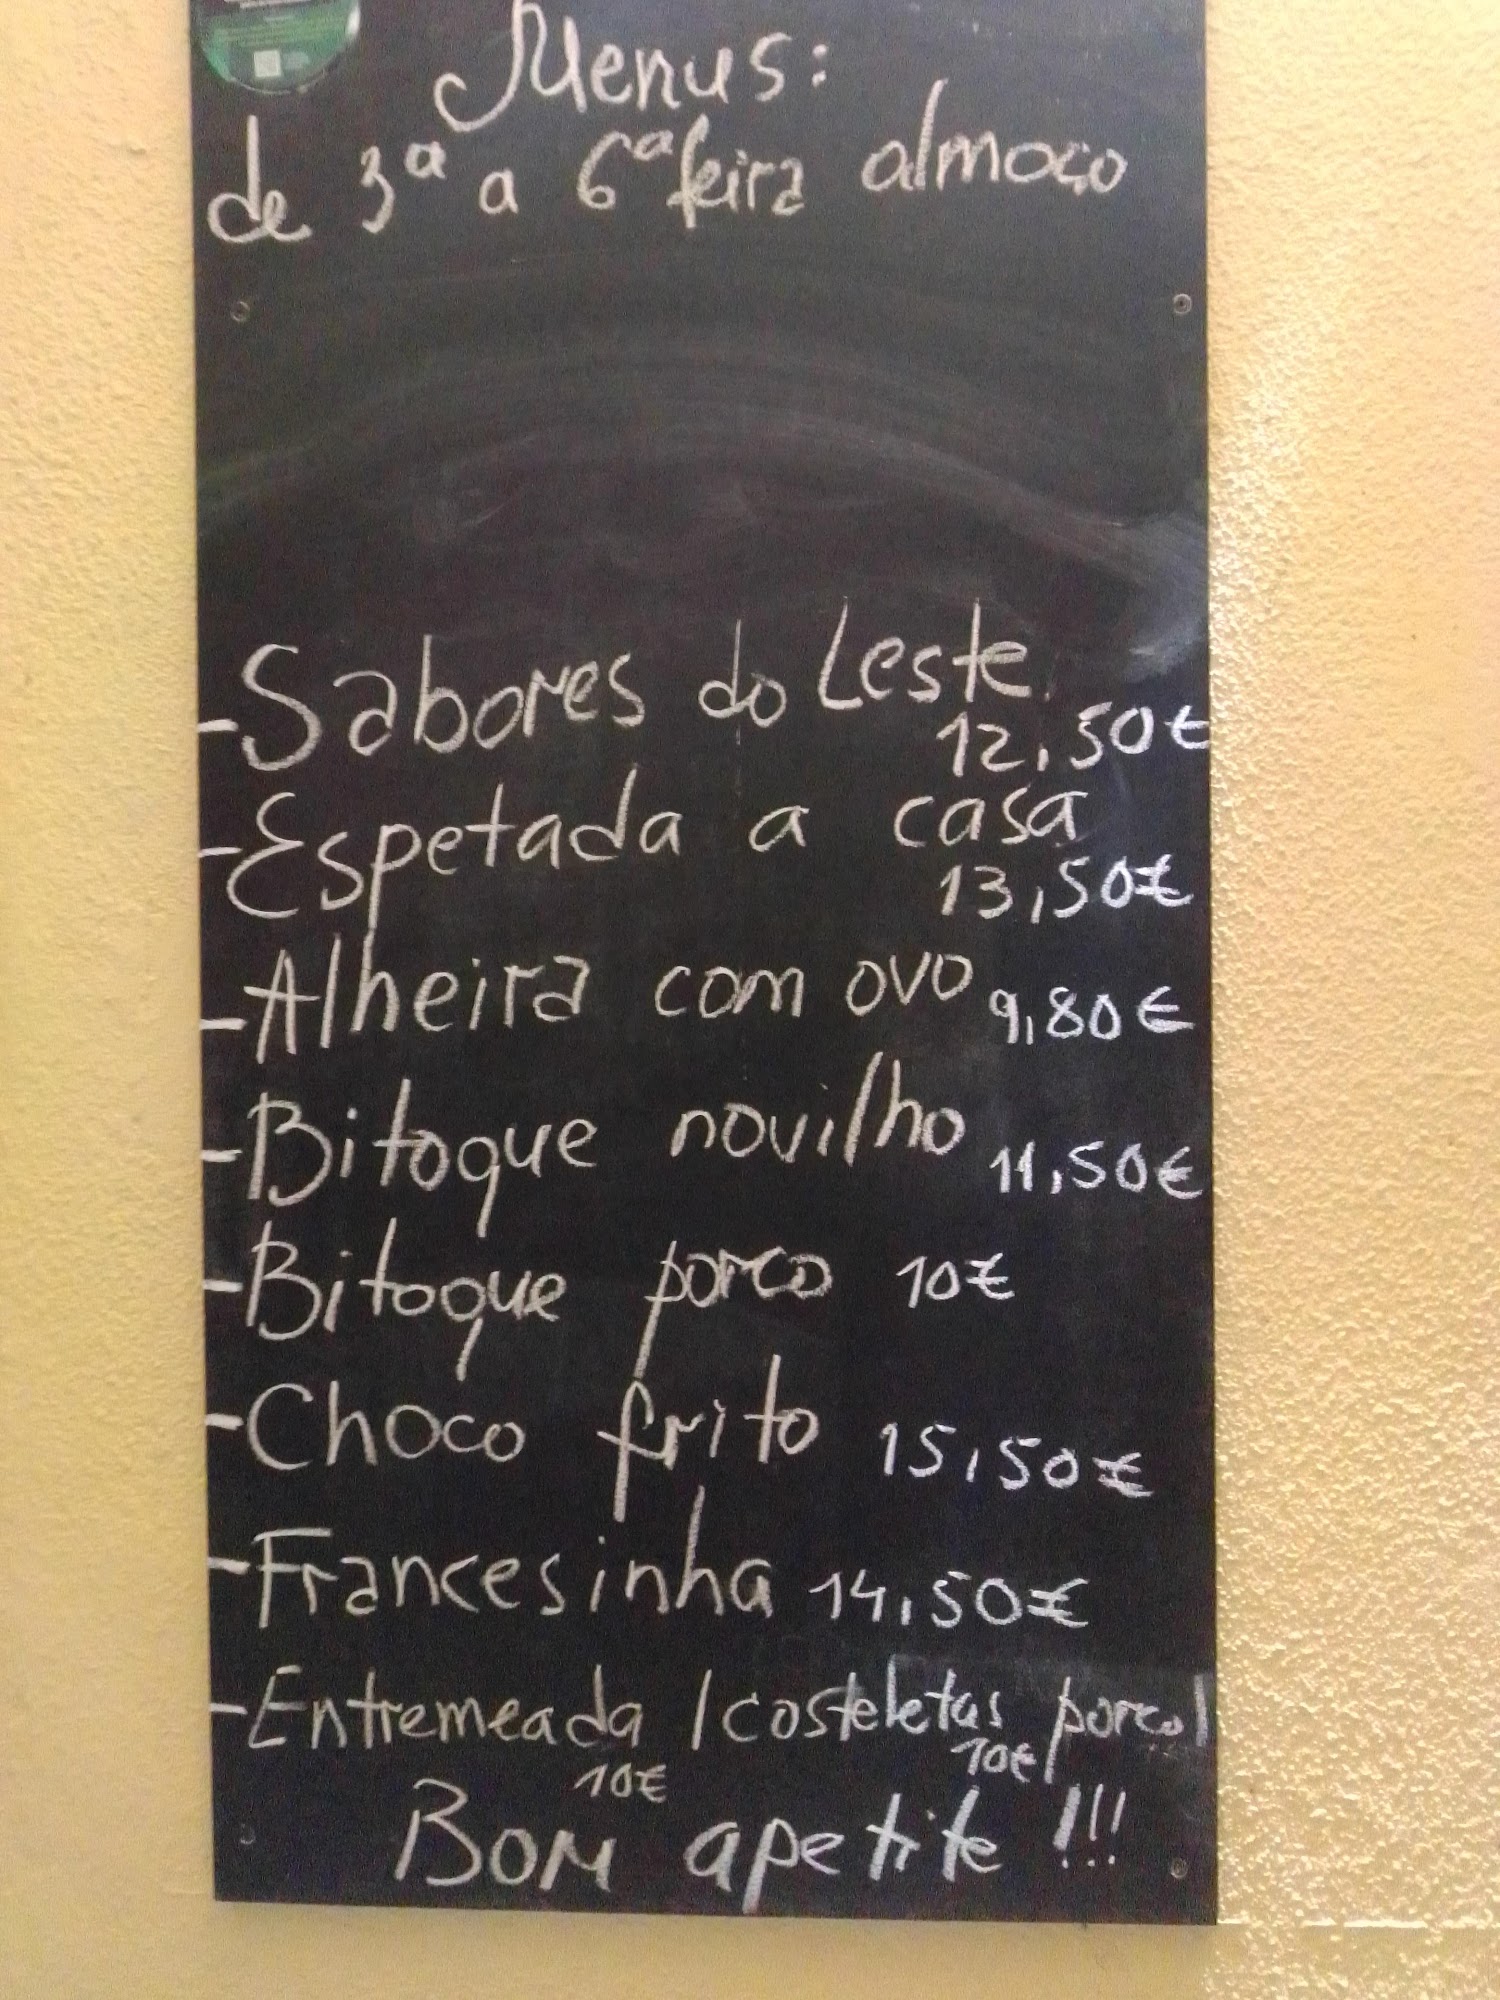 Menus:
de 3ª a 6ª feira almoço
- Sabores do Leste
12,50€
- Espetada a casa
13,50€
- Alheira com ovo 9,80€
- Bitoque novilho 11,50€
- Bitoque porco 10€
- Choco frito 15,50€
- Francesinha 14,50€
- Entremeada / costeletas porco /
10€ 10€ /
Bom apetite !!!